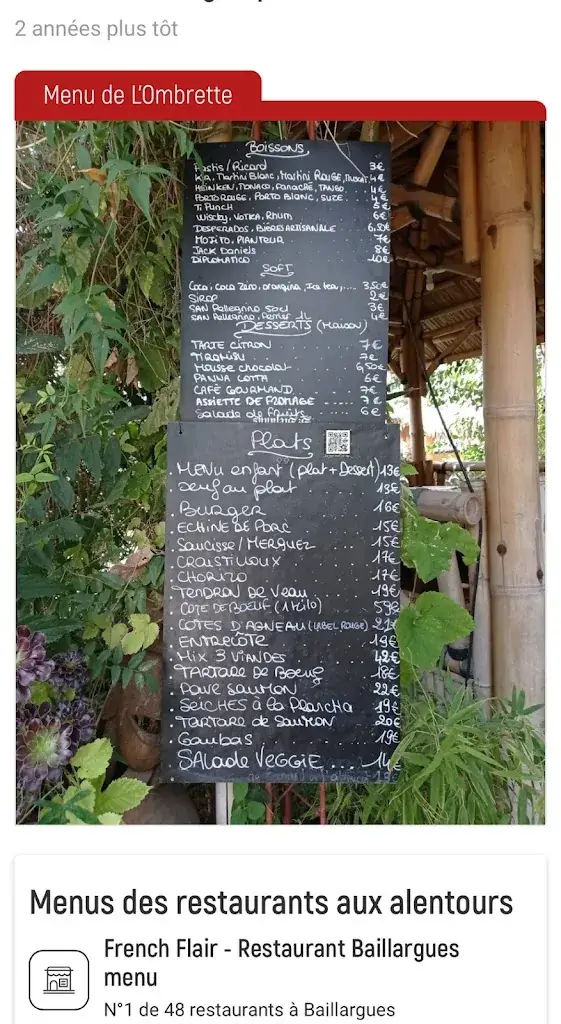 2 années plus tôt
Menu de L'Ombrette
BOISSONS
Pastis / Ricard 3€
Kir, Martini Blanc, Martini Rouge, Muscat 4€
HEINKEN, MONACO, Panaché, TANGO 4€
PORTO ROUGE, PORTO BLANC, SUZE 4€
Ti Punch 5€
Wiscky, VOTKA, Rhum 6€
DESPERADOS, BIÈRES ARTISANALE 6,50€
MOJITO, PLANTEUR 7€
JACK Daniels 8€
DIPLOMATICO 10€
SOFT
Coca, Coca Zéro, Orangina, Ice tea, ... 3,50€
SIROP 2€
SAN Pellegrino 50cl 3€
SAN Pellegrino, Perrier 1L 4€
DESSERTS (MAISON)
TARTE CITRON 7€
TIRAMISU 7€
Mousse chocolat 6,50€
PANNA COTTA 6€
CAFÉ GOURMAND 7€
ASSIETTE DE FROMAGE 7€
Salade de fruits 6€
Plats
Menu enfant (plat + Dessert) 13€
Oeuf au plat 13€
Burger 16€
ECHINE DE PORC 15€
Saucisse / MERGUEZ 15€
CROUSTILLOUX 17€
CHORIZO 17€
TENDRON DE Veau 19€
COTE DE BOEUF (1 Kilo) 59€
COTES D'AGNEAU (LABEL ROUGE) 21€
ENTRECÔTE 19€
Mix 3 VIANDES
TARTARE DE Boeuf 18€
PAVE SAUMON 22€
SEICHES à la Plancha 19€
TARTARE de SAUMON 20€
Gambas 19€
SALADE VEGGIE 14€
Menus des restaurants aux alentours
French Flair - Restaurant Baillargues
menu
N°1 de 48 restaurants à Baillargues